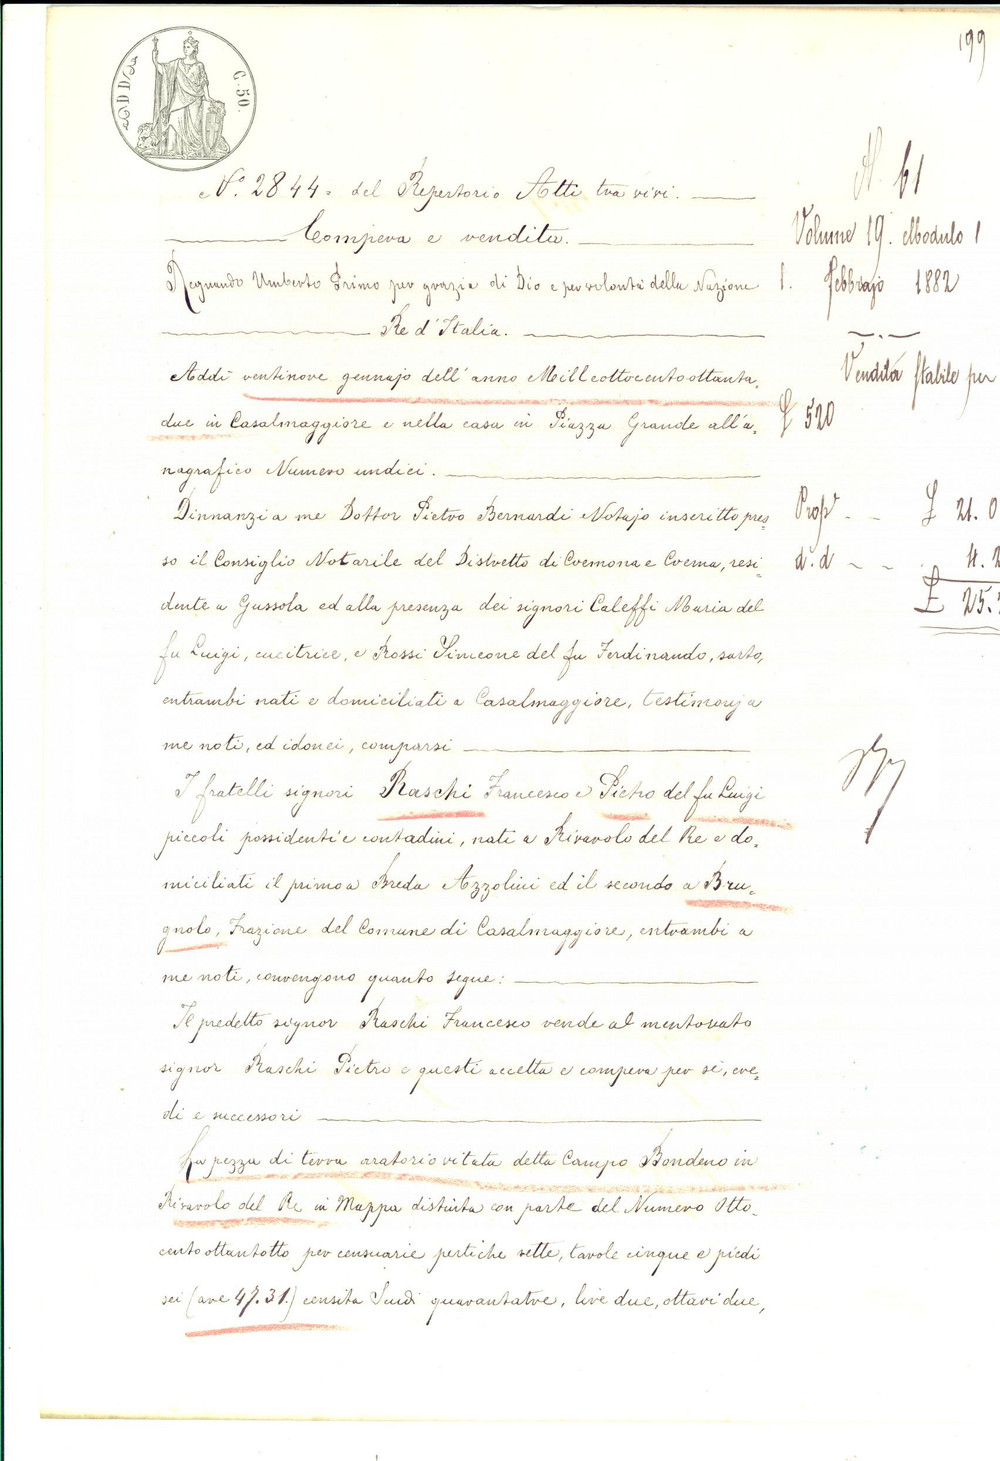 199
C. 50.
N.º 2844. del Repertorio Atti tra vivi.
Compera e vendita.
Regnando Umberto Primo per grazia di Dio e per volontà della Nazione
Re d'Italia.
Addì ventinove gennajo dell'anno Milleottocentoottanta-
due in Casalmaggiore e nella casa in Piazza Grande all'a-
nagrafico Numero undici.
Dinnanzi a me Dottor Pietro Bernardi Notajo inscritto pres-
so il Consiglio Notarile del Distretto di Cremona e Crema, resi-
dente a Gussola ed alla presenza dei signori Caleffi Maria del
fu Luigi, cucitrice, e Rossi Simeone del fu Ferdinando, sarto,
entrambi nati e domiciliati a Casalmaggiore, testimonj a
me noti, ed idonei, comparsi
I fratelli signori Raschi Francesco e Pietro del fu Luigi
piccoli possidenti e contadini, nati a Rivarolo del Re e do-
miciliati il primo a Breda Azzolini ed il secondo a Bru-
gnolo, Frazione del Comune di Casalmaggiore, entrambi a
me noti, convengono quanto segue:
Il predetto signor Raschi Francesco vende al mentovato
signor Raschi Pietro e questi accetta e compera per sè, ere-
di e successori
La pezza di terra aratorio vitata detta Campo Bondeno in
Rivarolo del Re in Mappa distinta con parte del Numero Otto-
cento ottantotto per censuarie pertiche sette, tavole cinque e piedi
sei (are 47.31.) censita Scudi quarantatre, lire due, ottavi due,
N. 61
Volume 19. Modulo 1
1. Febbrajo 1882
Vendita stabile per
£ 520
Prop.e £ 21.0
d.d 4.2
£ 25.